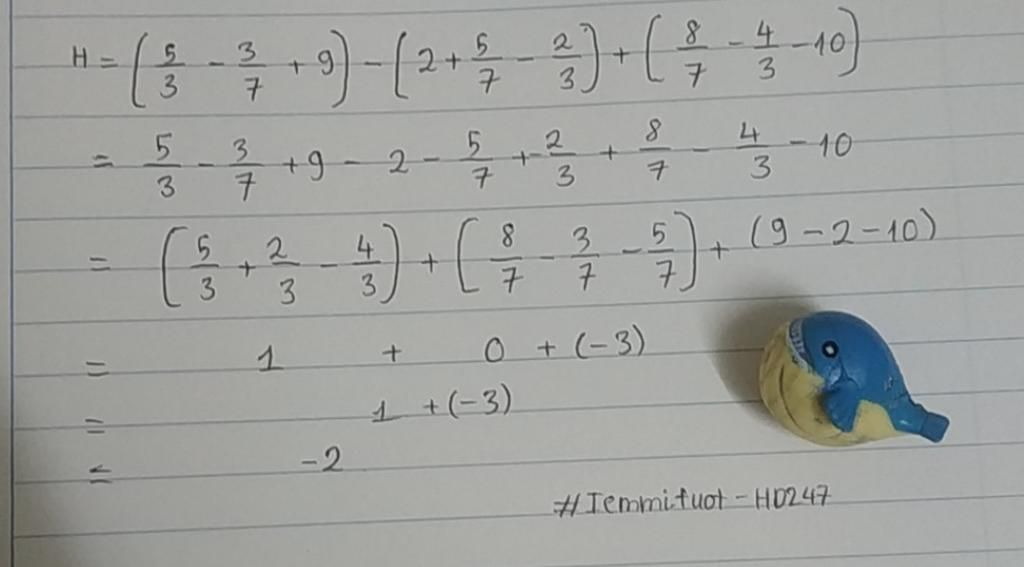 H = (5/3 - 3/7 + 9) - (2 + 5/7 - 2/3) + (8/7 - 4/3 - 10)
= 5/3 - 3/7 + 9 - 2 - 5/7 + 2/3 + 8/7 - 4/3 - 10
= (5/3 + 2/3 - 4/3) + (8/7 - 3/7 - 5/7) + (9 - 2 - 10)
= 1 + 0 + (-3)
= 1 + (-3)
= -2
#Iemmituot - HD247